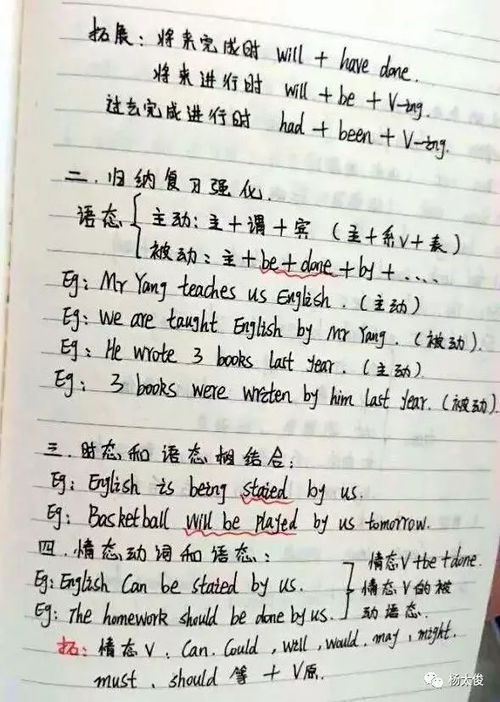 拓展：将来完成时 will + have done.
将来进行时 will + be + V-ing.
过去完成进行时 had + been + V-ing.
二．归纳复习强化．
语态
主动：主+谓+宾（主+系V+表）
被动：主+be+done+by+....
Eg：Mr Yang teaches us English．（主动）
Eg：We are taught English by Mr Yang．（被动）．
Eg：He wrote 3 books last year．（主动）
Eg：3 books were written by him last year.（被动）
三．时态和语态相结合：
Eg：English is being stated by us.
Eg：Basketball will be played by us tomorrow.
四．情态动词和语态：
情态V+be+done.
Eg：English Can be stated by us.
情态V的被
Eg：The homework should be done by us.
动语态．
拓：情态V．Can．Could，will，would．may，might．
must．should 等 + V原．
杨太俊